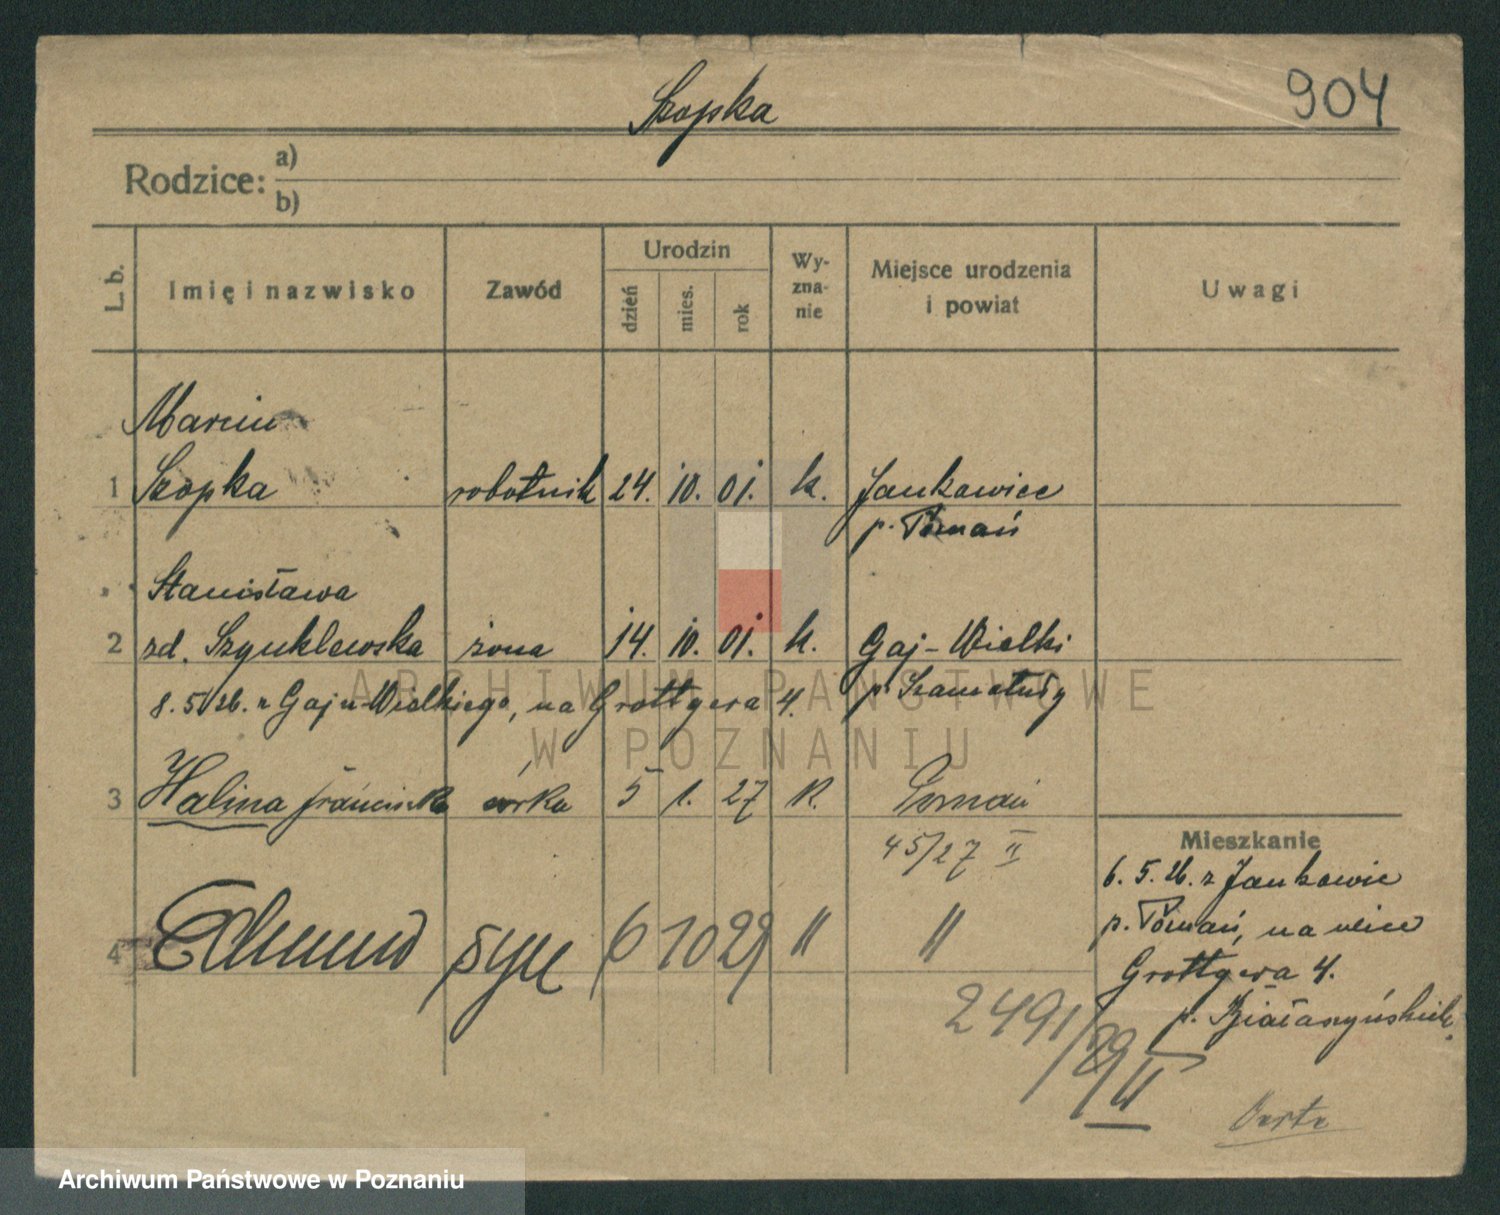 Szopka
904
Rodzice: a)
b)
L. b.
Imię i nazwisko
Zawód
Urodzin
dzień
mies.
rok
Wy-
zna-
nie
Miejsce urodzenia
i powiat
Uwagi
Marcin
1 Szopka robotnik 24. 10. 01. k. Jankowice
p. Poznań
Stanisława
2 zd. Szynklewska żona 14. 10. 01. k. Gaj-Wielki
p. Szamotuły
8. 5. 26. z Gaju-Wielkiego, na Grottgera 4.
3 Halina Franciszka córka 5 1. 27 k. Poznań
45/27 II
4 Edmund syn 6 10 29 " "
2491/29 II
Mieszkanie
6. 5. 26. z Jankowic
p. Poznań, na ulice
Grottgera 4.
p.
ARCHIWUM PAŃSTWOWE
W POZNANIU
Archiwum Państwowe w Poznaniu